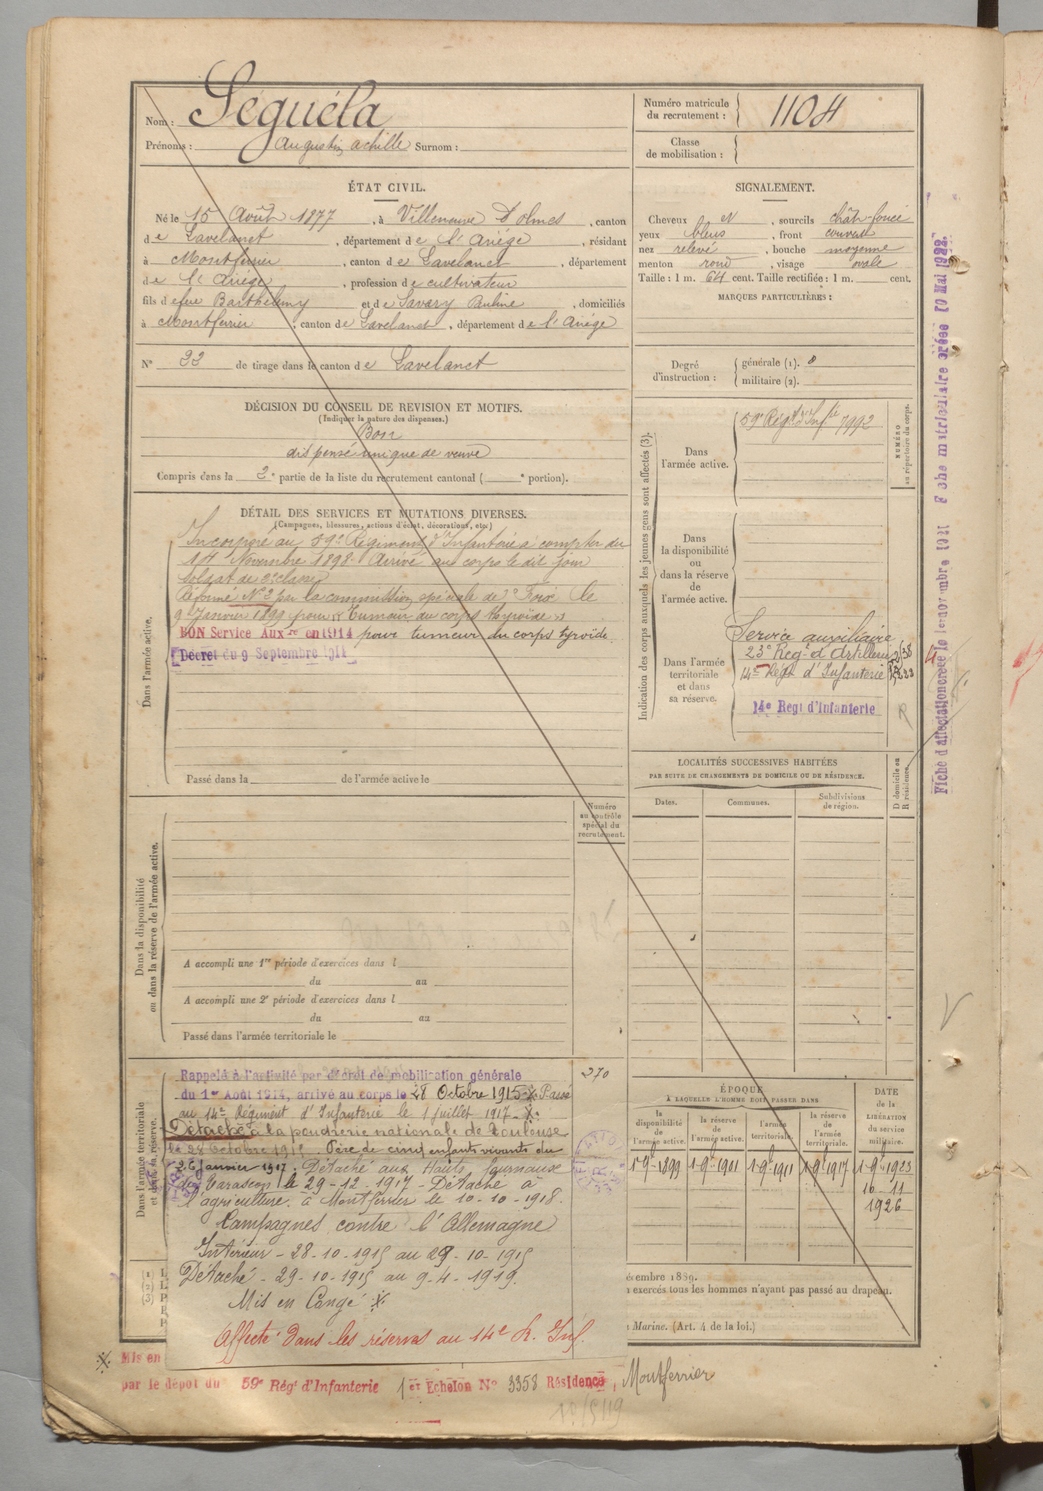 Nom : Séguéla
Prénoms : Augustin, Achille Surnom :
Numéro matricule du recrutement : 1104
Classe de mobilisation :
ÉTAT CIVIL.
Né le 15 Août 1877, à Villeneuve d'Olmes, canton
de Lavelanet, département de l'Ariége, résidant
à Montferrier, canton de Lavelanet, département
de l'Ariége, profession de cultivateur
fils de feu Barthélemy et de Savary Pauline, domiciliés
à Montferrier, canton de Lavelanet, département de l'Ariége
N° 33 de tirage dans le canton de Lavelanet
SIGNALEMENT.
Cheveux et, sourcils chât-foncé
yeux bleus, front couvert
nez relevé, bouche moyenne
menton rond, visage ovale
Taille : 1 m. 64 cent. Taille rectifiée : 1 m. cent.
MARQUES PARTICULIÈRES :
Degré d'instruction : générale (1). militaire (2).
DÉCISION DU CONSEIL DE REVISION ET MOTIFS.
(Indiquer la nature des dispenses.)
Bon
dispensé unique de veuve
Compris dans la 2e partie de la liste du recrutement cantonal ( e portion).
DÉTAIL DES SERVICES ET MUTATIONS DIVERSES.
(Campagnes, blessures, actions d'éclat, décorations, etc.)
Dans l'armée active.
Incorporé au 59e Régiment d'Infanterie à compter du
14 Novembre 1898. Arrivé au corps le dit jour
soldat de 2e classe
Réformé N° 2 par la commission spéciale de Foix le
9 Janvier 1899 pour "Tumeur du corps thyroïde"
BON Service Auxre en 1914 pour tumeur du corps tyroïde
Décret du 9 Septembre 1914
Passé dans la de l'armée active le
Indication des corps auxquels les jeunes gens sont affectés (3).
NUMÉRO au répertoire du corps.
Dans l'armée active.
59e Régt d'Infie 7992
Dans la disponibilité ou dans la réserve de l'armée active.
Dans l'armée territoriale et dans sa réserve.
Service auxiliaire
23e Régt d'Artillerie
14e Régt d'Infanterie
14e Régt d'Infanterie
LOCALITÉS SUCCESSIVES HABITÉES
PAR SUITE DE CHANGEMENTS DE DOMICILE OU DE RÉSIDENCE.
Dates. Communes. Subdivisions de région. D domicile ou R résidence.
Numéro au contrôle spécial du recrutement.
Dans la disponibilité ou dans la réserve de l'armée active.
A accompli une 1re période d'exercices dans l
du au
A accompli une 2e période d'exercices dans l
du au
Passé dans l'armée territoriale le
Dans l'armée territoriale et dans sa réserve.
270
Rappelé à l'activité par décret de mobilisation générale
du 1er Août 1914, arrivé au corps le 28 Octobre 1915. Passé
au 14e Régiment d'Infanterie le 1 Juillet 1917.
Détaché à la poudrerie nationale de Toulouse
le 28 Octobre 1915. Père de cinq enfants vivants du
26 Janvier 1917. Détaché aux Hauts fourneaux
de Tarascon le 29-12-1917 - Détaché à
l'agriculture à Montferrier le 10-10-1918.
Campagnes contre l'Allemagne
Intérieur - 28-10-1915 au 29-10-1915
Détaché - 29-10-1915 au 9-4-1919.
Mis en Congé
Affecté dans les réserves au 14e R. Inf.
ÉPOQUE
À LAQUELLE L'HOMME DOIT PASSER DANS
la disponibilité de l'armée active. la réserve de l'armée active. l'armée territoriale. la réserve de l'armée territoriale.
DATE de la LIBÉRATION du service militaire.
1-9e-1899 1-9e-1901 1-9e-1911 1-9e-1917 1-9e-1923
10-11
1926
écembre 1889.
n exercés tous les hommes n'ayant pas passé au drapeau.
Marine. (Art. 4 de la loi.)
Mis en
par le dépôt du 59e Régt d'Infanterie 1er Echelon N° 3358 Résidence, Montferrier
Fiche d'affectation créée le 1er novembre 1921 Fiche matriculaire créée 10 Mai 1922